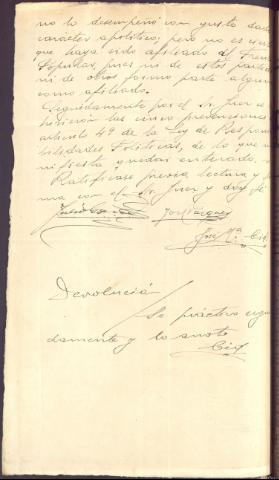 no lo desempeñó con gusto dado
carácter apolítico, pero no es cierto
que haya sido afiliado al Frente
Popular, pues ni de este partido
ni de otros formó parte alguna
como afiliado.
Seguidamente por el Sr. Juez se
hicieron las cinco prevenciones
artículo 49 de la Ley de Respon
bilidades Políticas, de lo que
nifiesta quedar enterado.
Ratifícase previa lectura y
ma con el Sr. Juez y doy fé
José Mª Cid
Devolución
Se practica segui
damente y lo anoto
Cid